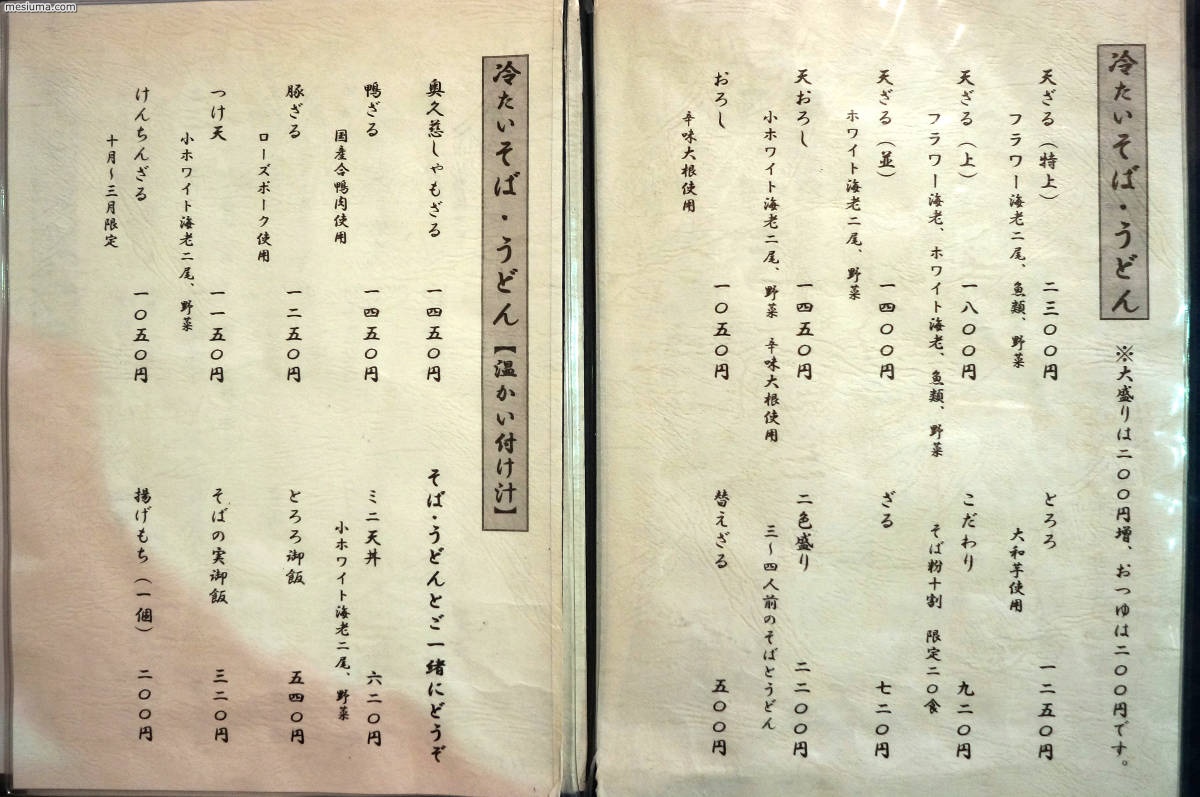 mesiuma.com
冷たいそば・うどん ※大盛りは二〇〇円増、おつゆは二〇〇円です。
天ざる（特上） 二三〇〇円
フラワー海老二尾、魚類、野菜
天ざる（上） 一八〇〇円
フラワー海老、ホワイト海老、魚類、野菜
天ざる（並） 一四〇〇円
ホワイト海老二尾、野菜
天おろし 一四五〇円
小ホワイト海老二尾、野菜 辛味大根使用
おろし 一〇五〇円
辛味大根使用
とろろ 一二五〇円
大和芋使用
こだわり 九二〇円
そば粉十割 限定二〇食
ざる 七二〇円
二色盛り 二二〇〇円
三〜四人前のそばとうどん
替えざる 五〇〇円
冷たいそば・うどん【温かい付け汁】
奥久慈しゃもざる 一四五〇円
鴨ざる 一四五〇円
国産合鴨肉使用
豚ざる 一二五〇円
ローズポーク使用
つけ天 一一五〇円
小ホワイト海老二尾、野菜
けんちんざる 一〇五〇円
十月〜三月限定
そば・うどんとご一緒にどうぞ
ミニ天丼 六二〇円
小ホワイト海老二尾、野菜
とろろ御飯 五四〇円
そばの実御飯 三二〇円
揚げもち（一個） 二〇〇円